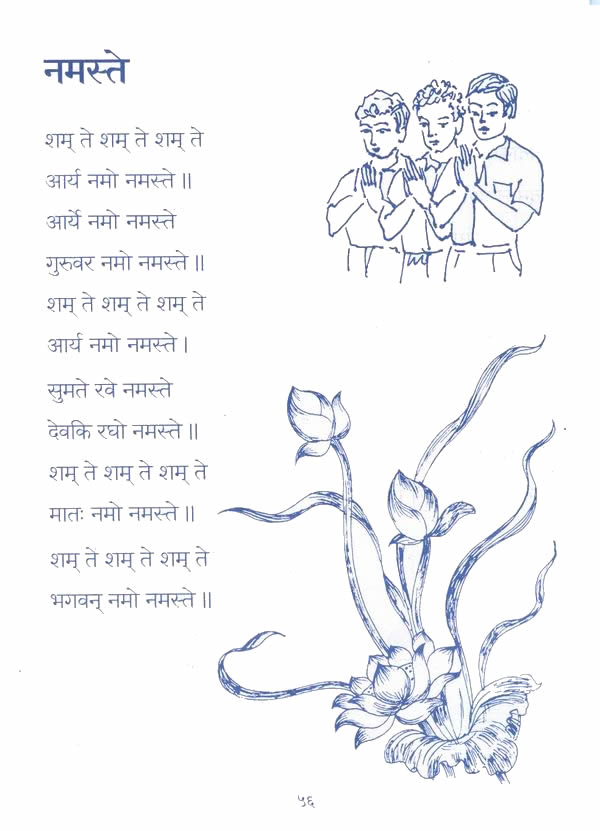 नमस्ते
शम् ते शम् ते शम् ते
आर्य नमो नमस्ते ॥
आर्ये नमो नमस्ते
गुरुवर नमो नमस्ते ॥
शम् ते शम् ते शम् ते
आर्य नमो नमस्ते ।
सुमते रवे नमस्ते
देवकि रघो नमस्ते ॥
शम् ते शम् ते शम् ते
मातः नमो नमस्ते ॥
शम् ते शम् ते शम् ते
भगवन् नमो नमस्ते ॥
५६